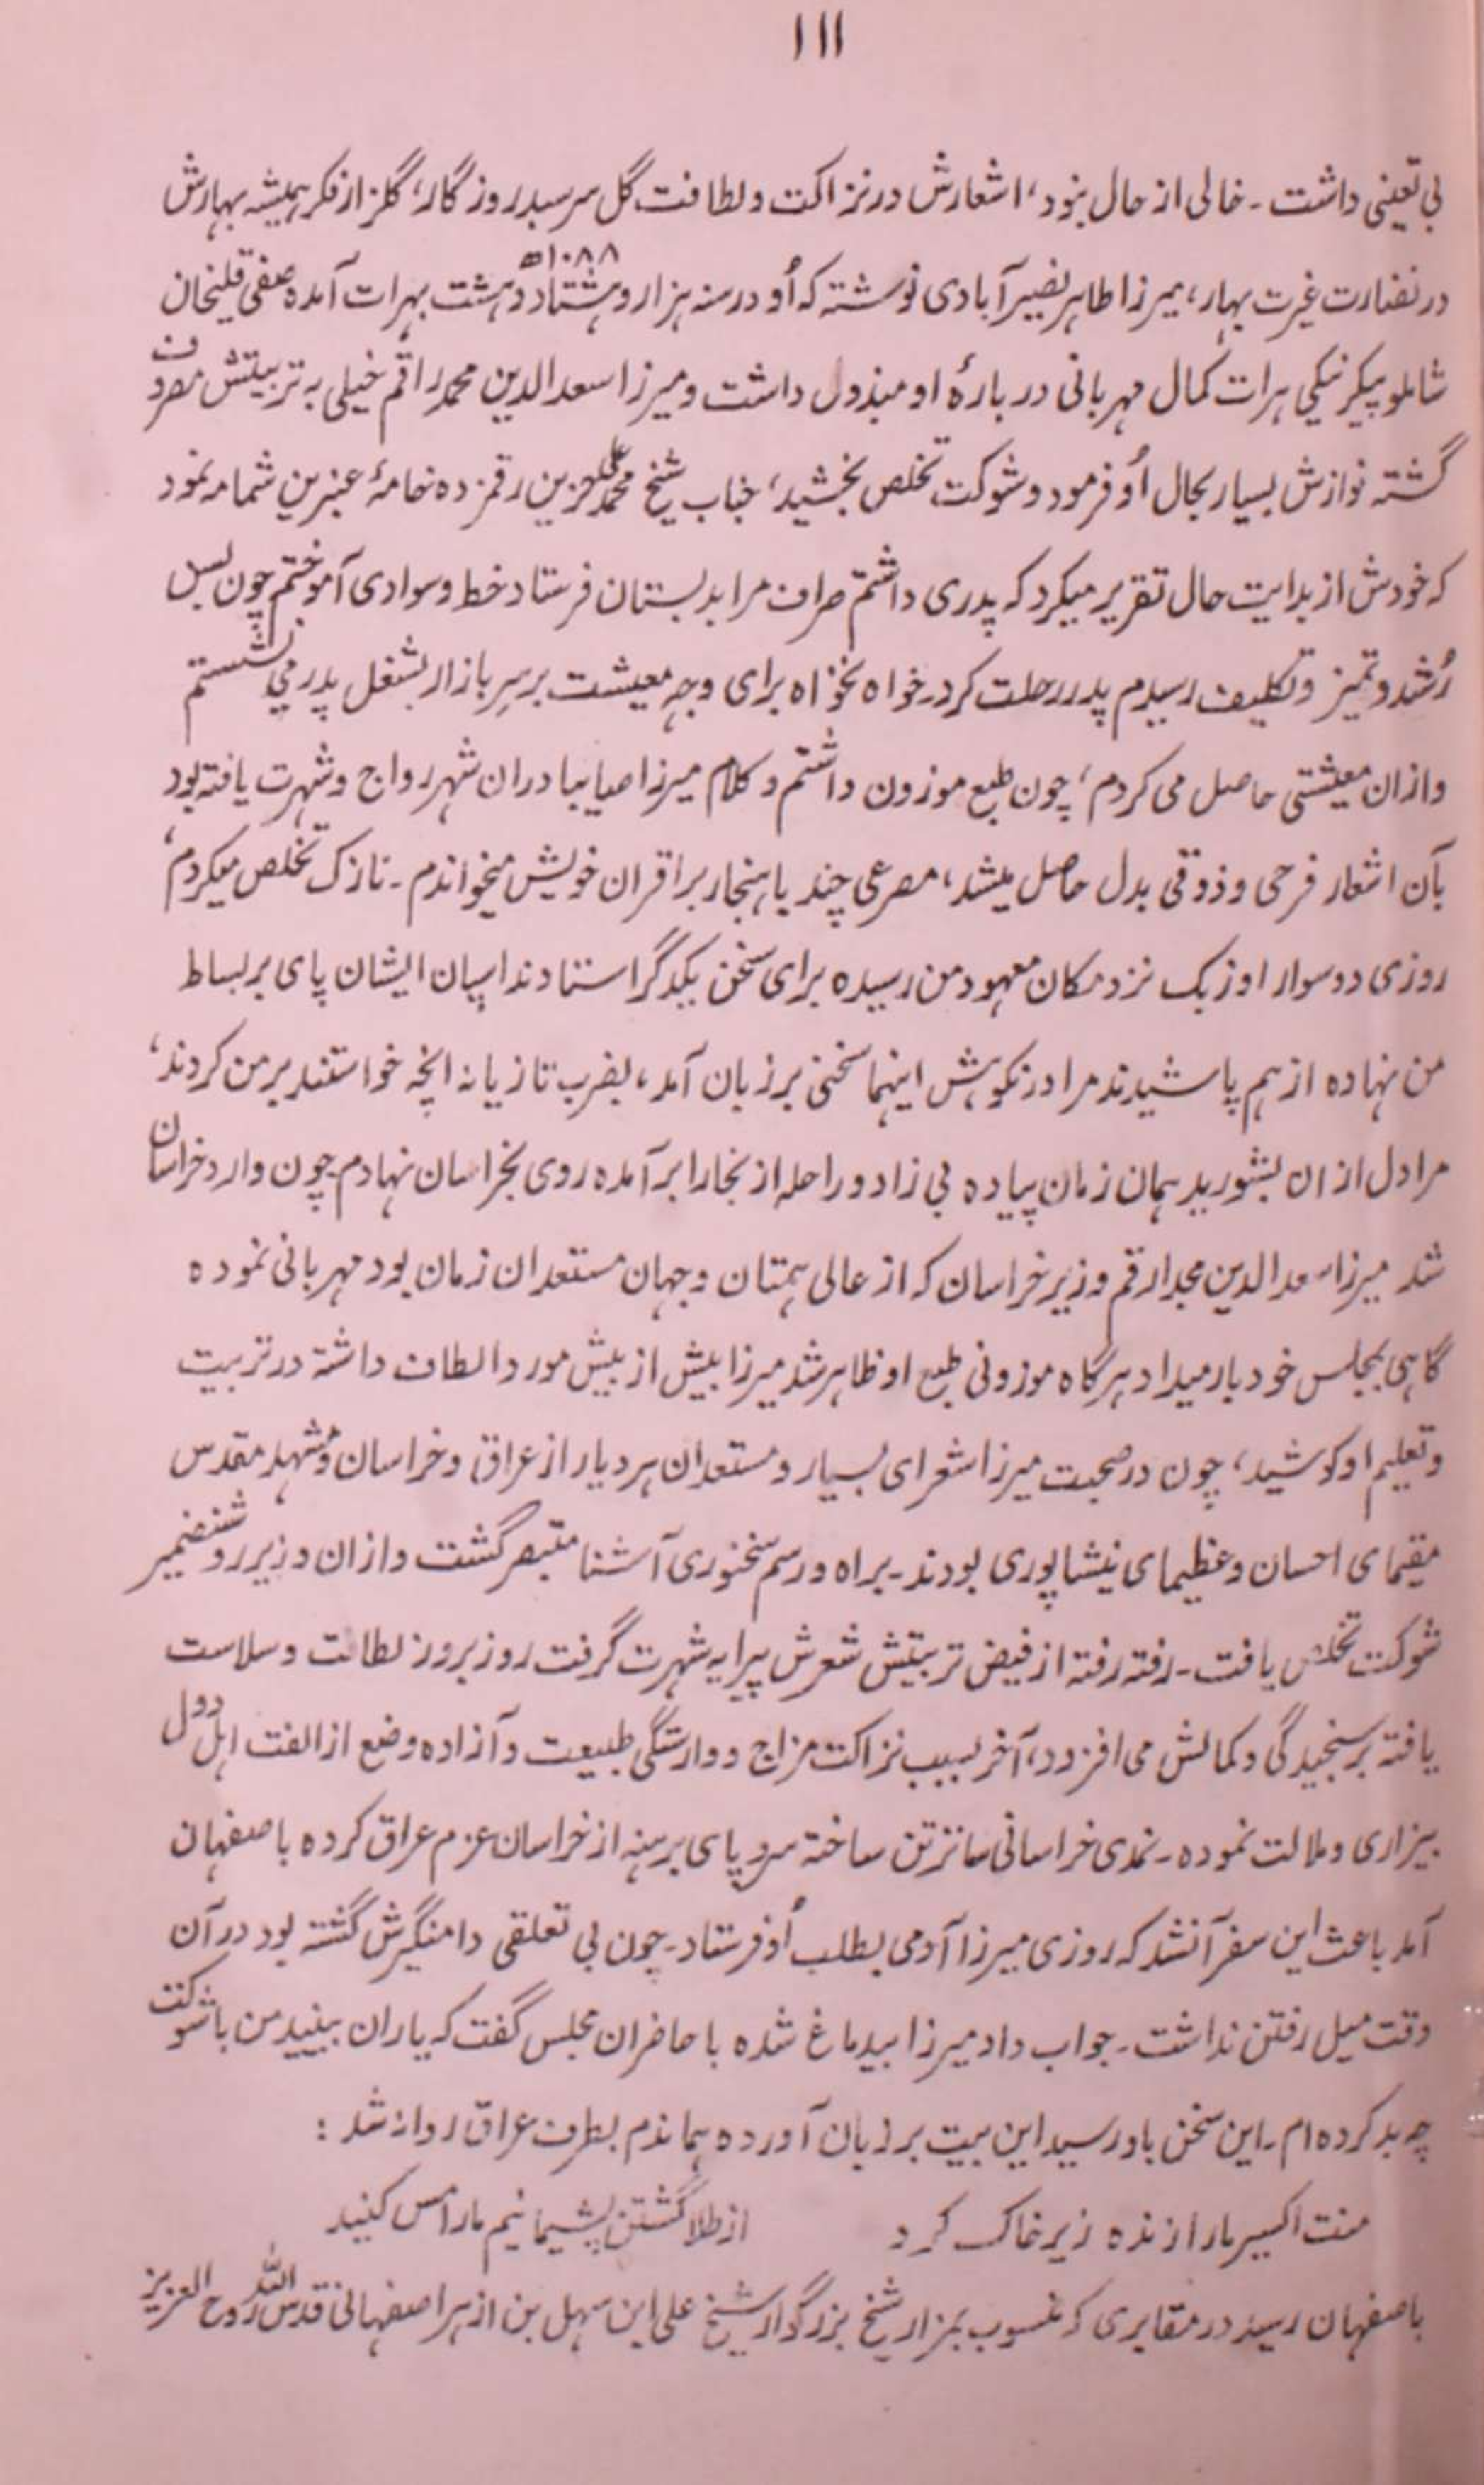 ۱۱۱
بی تعینی داشت ۔ خالی از حال نبود، اشعارش در نزاکت و لطافت گل سرسبد روزگار، گلزار فکر همیشه بهارش
۱۰۸۸ھ
در نضارت غیرت بهار، میرزا طاهر نصیرآبادی نوشته که اُو در سنه هزار و هشتاد و هشت بهرات آمده صفی قلیخان
شاملو بیگر بیگی هرات کمال مهربانی در بارۀ او مبذول داشت و میرزا سعدالدین محمد راقم خیلی به تربیتش مصروف
گشته نوازش بسیار بحال اُو فرمود و شوکت تخلص بخشید، جناب شیخ محمد علی حزین رقمزده خامۀ عنبرین شمامه نمود
که خودش از بدایت حال تقریر میکرد که پدری داشتم صراف مرا بدبستان فرستاد خط و سوادی آموختم چون بسن
رُشد و تمیز و تکلیف رسیدم پدر رحلت کرد ۔ خواه نخواه برای وجهِ معیشت بر سرِ بازار بشغل پدر می نشستم
و ازان معیشتی حاصل می کردم، چون طبع موزون داشتم و کلام میرزا صایبا دران شهر رواج و شهرت یافته بود
بآن اشعار فرحی و ذوقی بدل حاصل میشد، مصرعی چند با هنجار بر اقران خویش میخواندم ۔ نازک تخلص میکردم،
روزی دو سوار اوزبک نزد مکان معهود من رسیده برای سخن یکدگر استادند اسپان ایشان پای بر بساط
من نهاده از هم پاشیدند مرا در نکوهش اینها سخنی بر زبان آمد، بضرب تازیانه آنچه خواستند بر من کردند،
مرا دل ازان بشورید همان زمان پیاده بی زاد و راحله از بخارا برآمده روی بخراسان نهادم چون وارد خراسان
شد میرزا سعدالدین محمد راقم وزیر خراسان که از عالی همتان و جهان مستعدان زمان بود مهربانی نموده
گاهی بمجلس خود بار میداد هرگاه موزونی طبع او ظاهر شد میرزا بیش از پیش مورد الطاف داشته در تربیت
و تعلیم او کوشید، چون در صحبت میرزا شعرای بسیار و مستعدان هر دیار از عراق و خراسان و مشهد مقدس
مقیمای احسان و عظیمای نیشاپوری بودند ۔ براه و رسم سخنوری آشنا متبصر گشت و ازان وزیر روشنضمیر
شوکت تخلص یافت ۔ رفته رفته از فیض تربیتش شعرش پیرایه شهرت گرفت روز بروز لطافت و سلاست
یافته بر سنجیدگی و کمالش می افزود، آخر بسبب نزاکت مزاج و وارستگی طبیعت و آزاده وضع از الفت اهل دول
بیزاری و ملالت نموده ۔ نمدی خراسانی ساتر تن ساخته سر و پای برهنه از خراسان عزم عراق کرده باصفهان
آمد باعث این سفر آنشد که روزی میرزا آدمی بطلب اُو فرستاد ۔ چون بی تعلقی دامنگیرش گشته بود در آن
وقت میل رفتن نداشت ۔ جواب داد میرزا بیدماغ شده با حاضران مجلس گفت که یاران ببینید من با شوکت
چه بد کرده ام ۔ این سخن باو رسید این بیت بر زبان آورده هماندم بطرف عراق روانه شد :
منت اکسیر ما را زنده زیر خاک کرد از طلا گشتن پشیمانیم ما را مس کنید
باصفهان رسید در مقابری که منسوب بمزار شیخ بزرگوار شیخ علی ابن سهل بن ازهر اصفهانی قدس الله روح العزیز